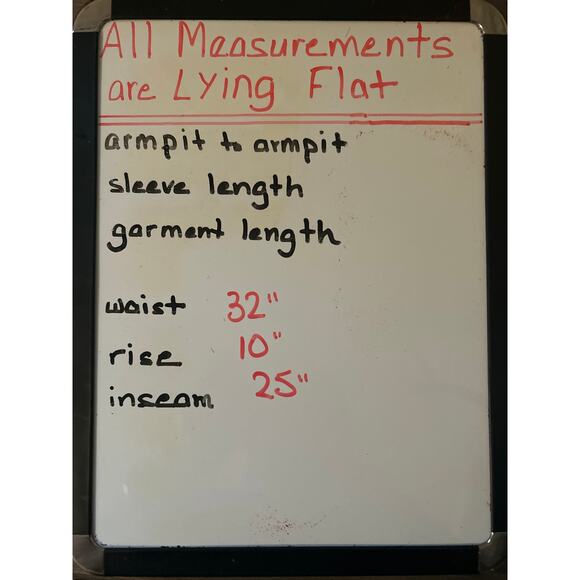 All Measurements
are Lying Flat
armpit to armpit
sleeve length
garment length
waist 32"
rise 10"
inseam 25"